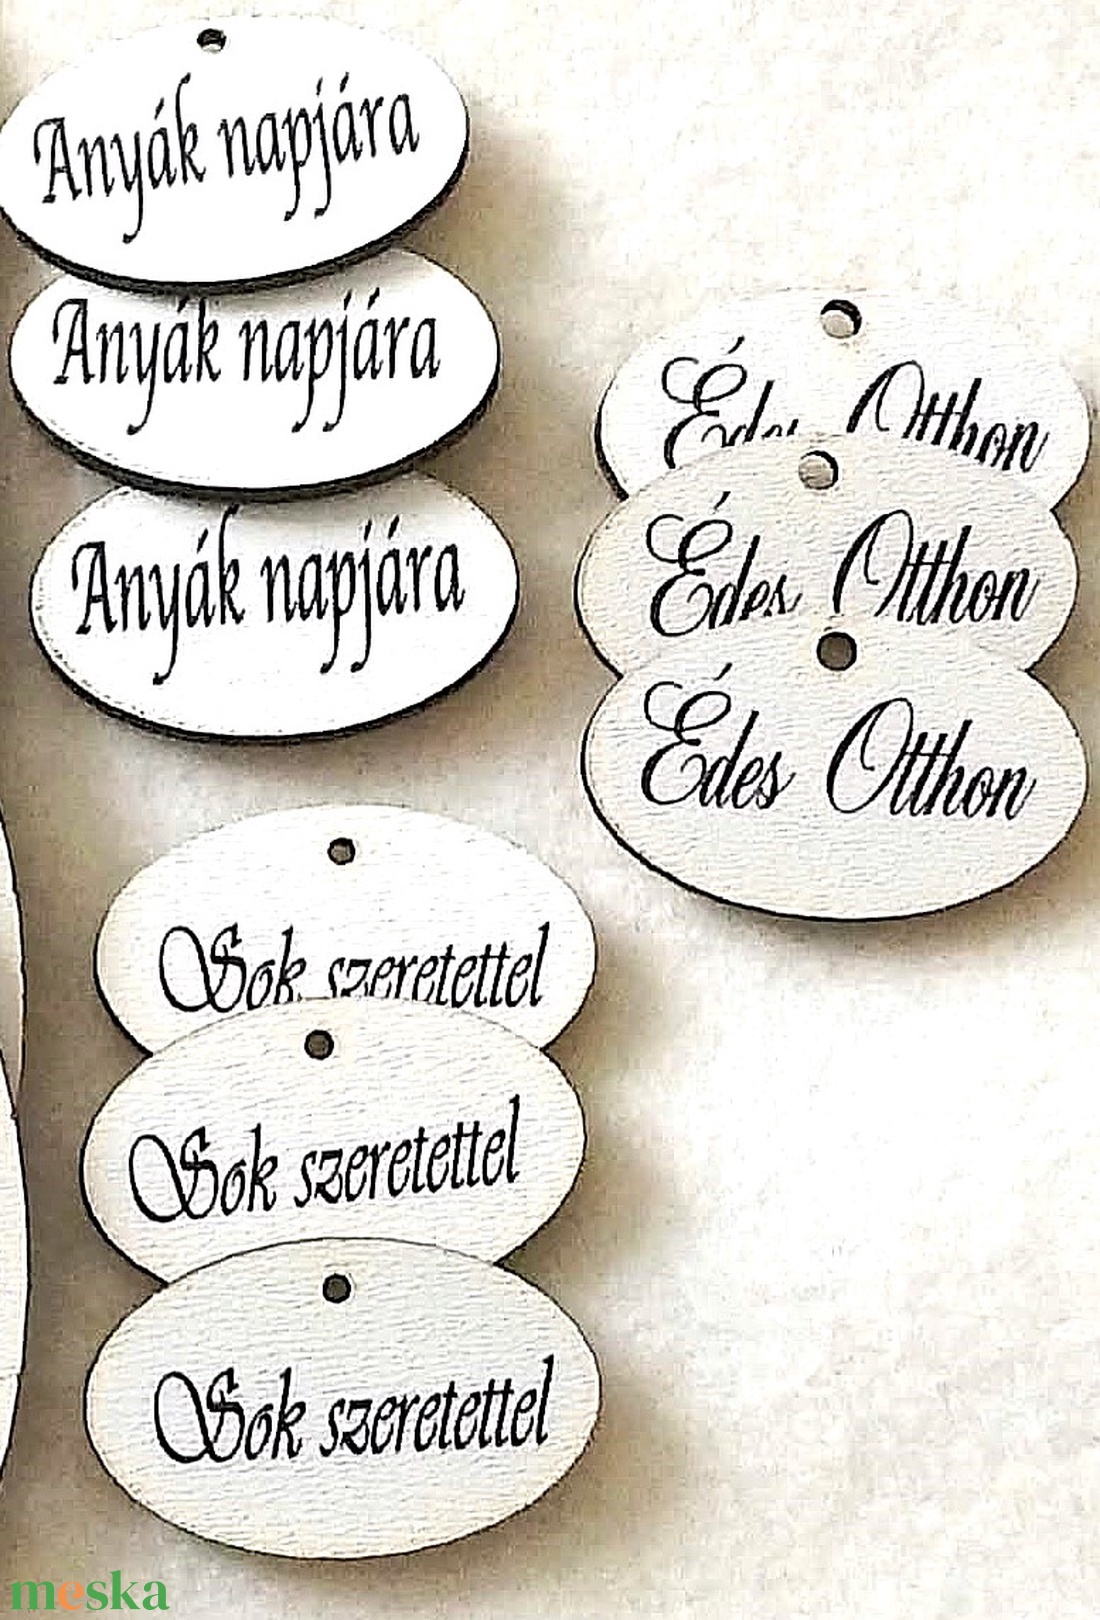 Anyák napjára
Anyák napjára
Anyák napjára
Édes Otthon
Édes Otthon
Édes Otthon
Sok szeretettel
Sok szeretettel
Sok szeretettel
meska